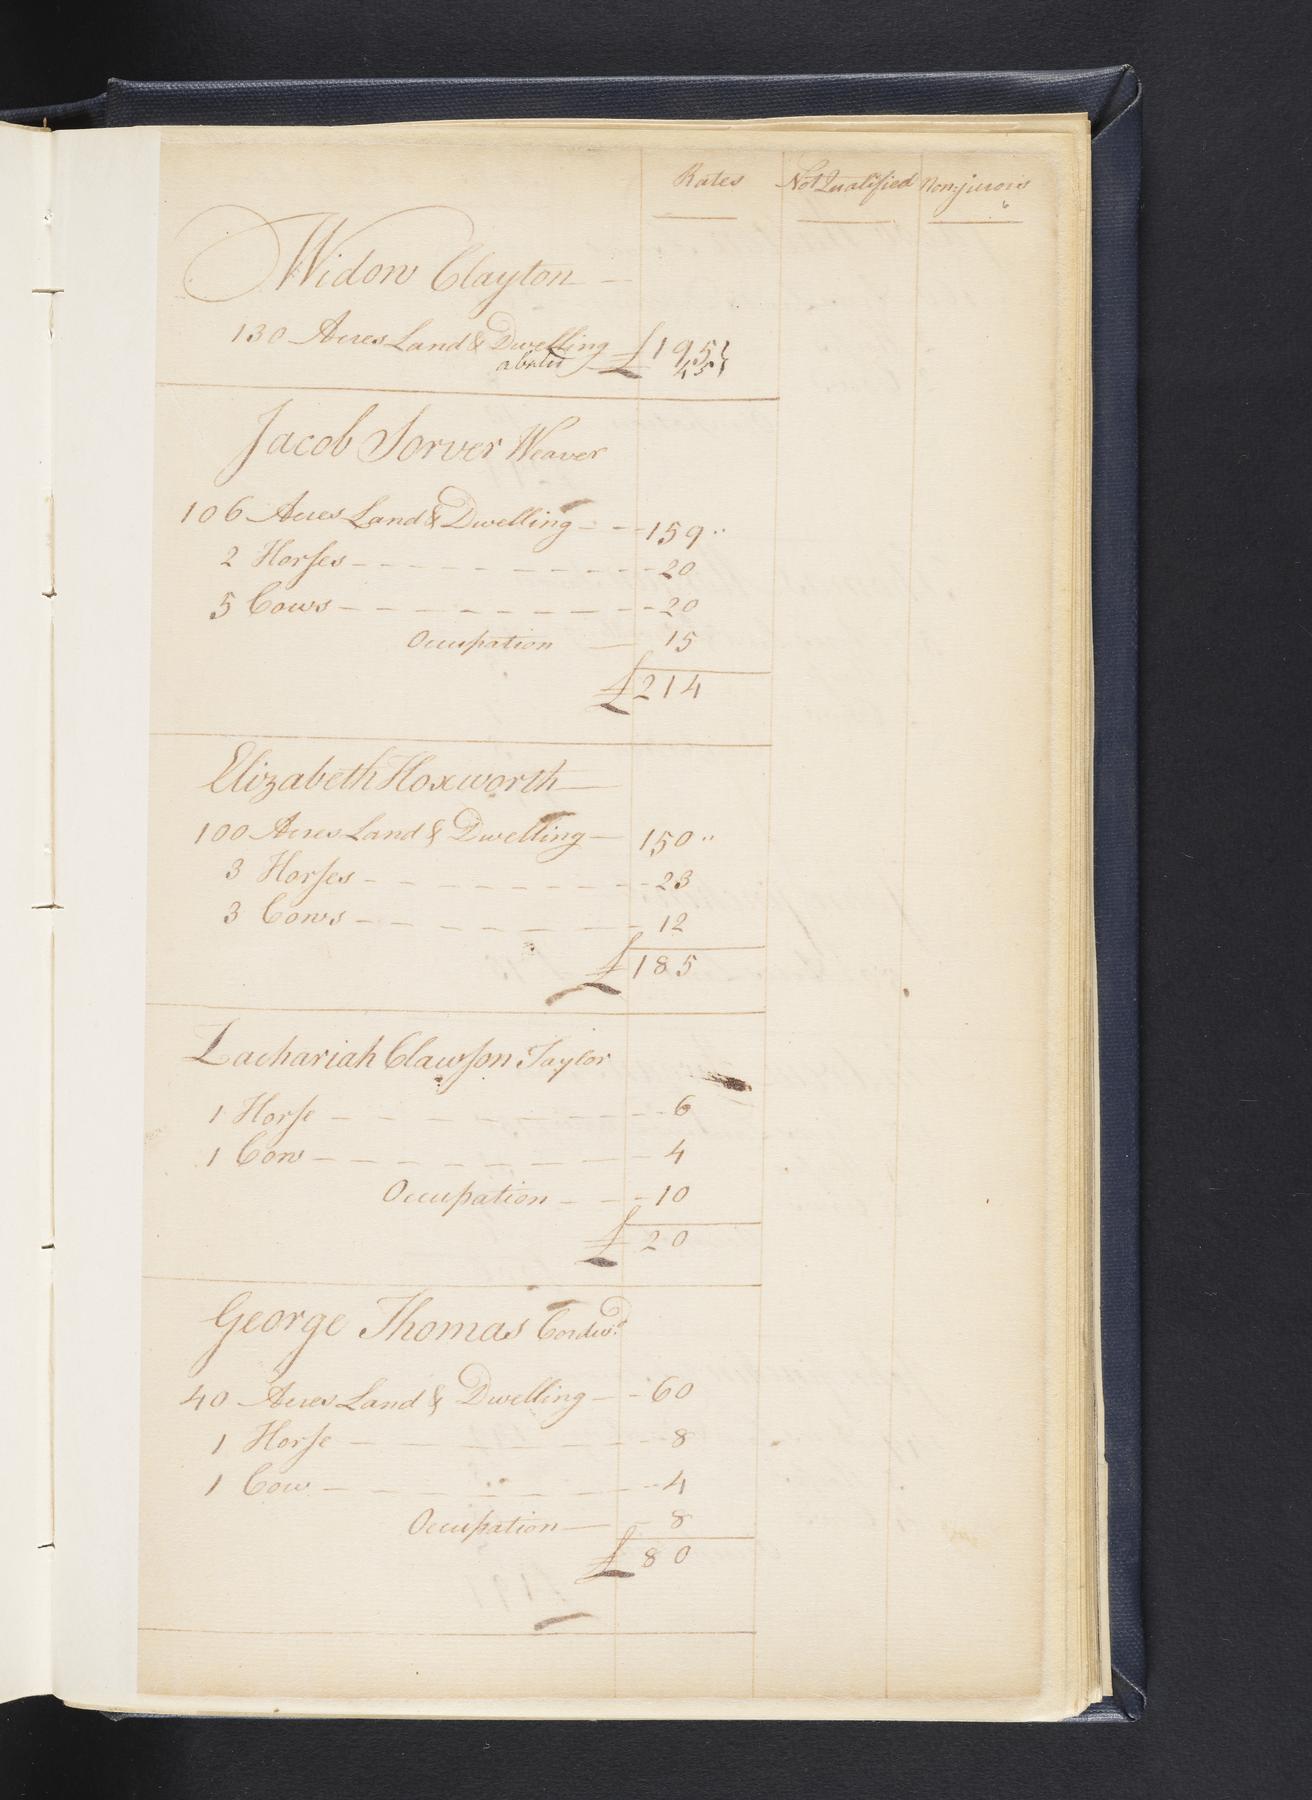 Rates Not Qualified Nonjurors
Widow Clayton
130 Acres Land & Dwelling £195
abated 45
Jacob Sorver Weaver
106 Acres Land & Dwelling 159
2 Horses 20
5 Cows 20
Occupation 15
£214
Elizabeth Hoxworth
100 Acres Land & Dwelling 150
3 Horses 23
3 Cows 12
£185
Zachariah Clawson Taylor
1 Horse 6
1 Cow 4
Occupation 10
£20
George Thomas Cordwr
40 Acres Land & Dwelling 60
1 Horse 8
1 Cow 4
Occupation 8
£80